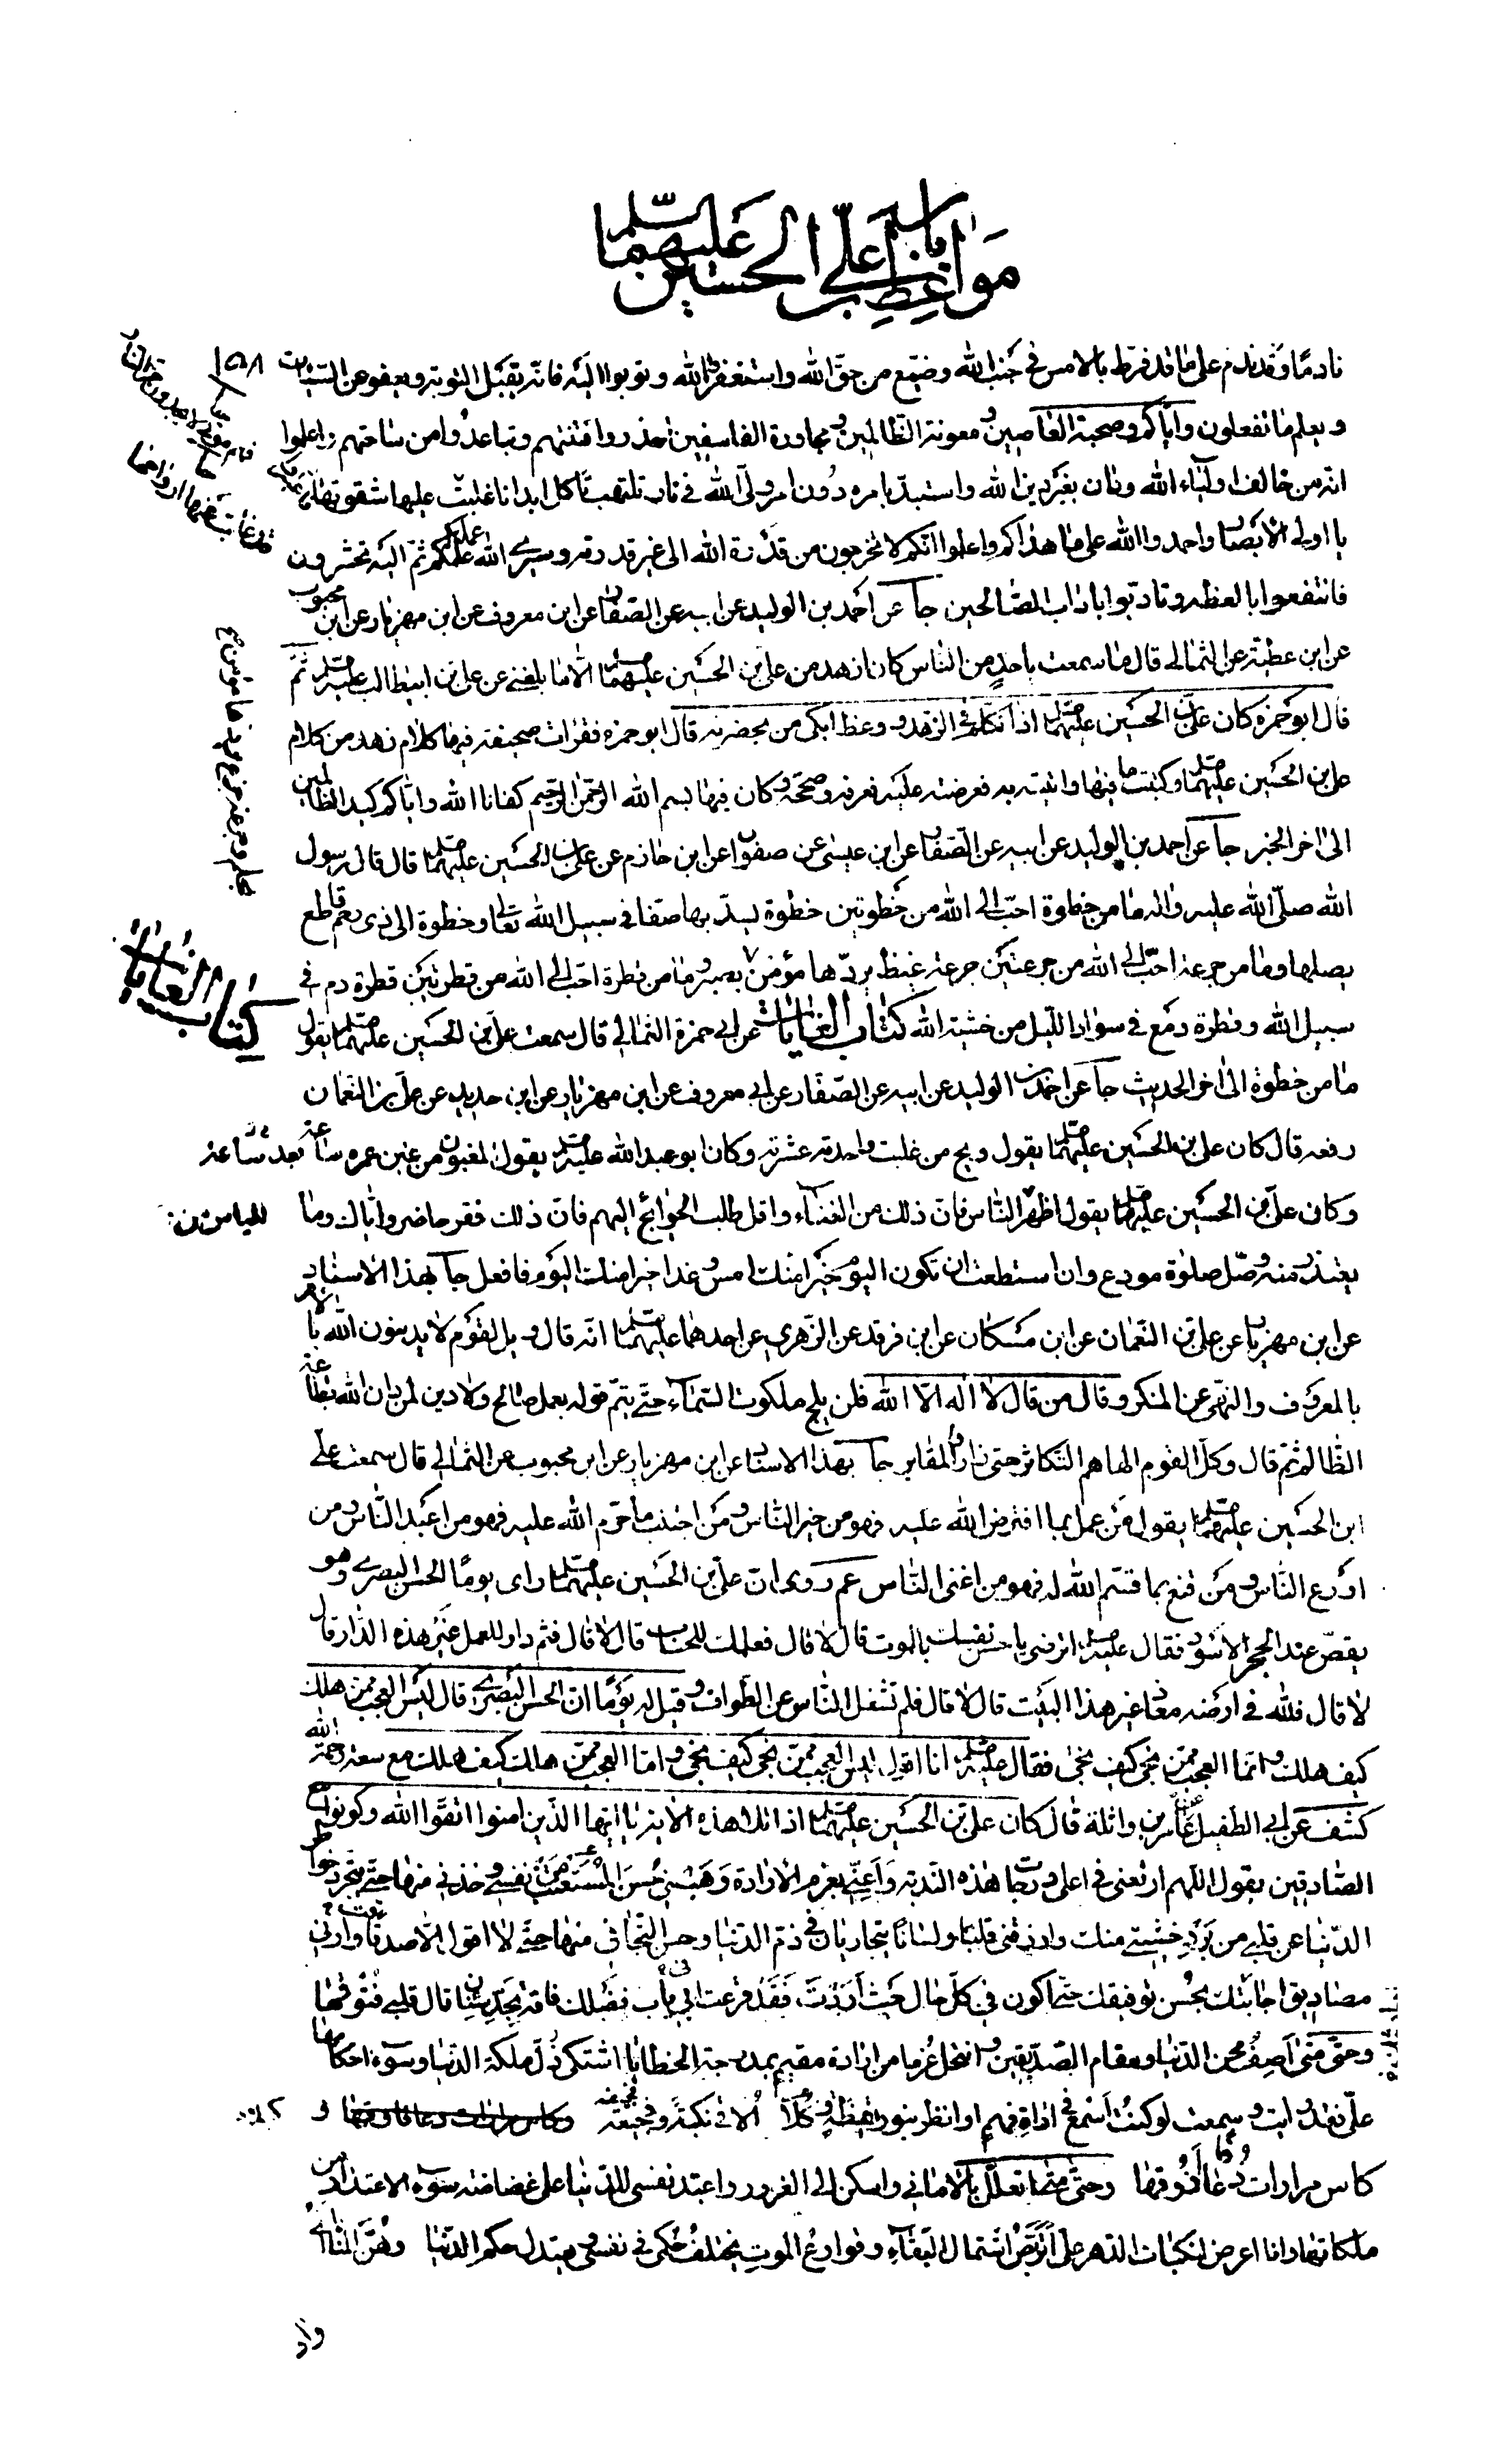 باب مواعظ علي بن الحسين عليهما السلم
١٥٨
نادمًا وقد ندم على ما قد فرّط بالامس في جنب الله وضيّع من حقّ الله واستغفروا الله وتوبوا اليه فانّه يقبل التوبة ويعفو عن السيئات
ويعلم ما تفعلون وايّاكم وصحبة العاصين ومعونة الظالمين ومجاورة الفاسقين احذروا فتنتهم وتباعدوا من ساحتهم واعلموا
انّه من خالف اولياء الله ودان بغير دين الله واستبدّ بامره دون امر وليّ الله في نار تلتهب تأكل ابدانا غلبت عليها شقوتها فاعتبروا
يا اولي الابصار واحمدوا الله على ما هداكم واعلموا انّكم لا تخرجون من قدرة الله الى غير قدرته وسيرى الله عملكم ثمّ اليه تحشرون
فانتفعوا بالعظة وتأدّبوا باداب الصّالحين جا عن احمد بن الوليد عن ابيه عن الصفار عن ابن معروف عن ابن مهزيار عن ابن محبوب
عن ابن عطية عن الثمالي قال ما سمعت باحد من الناس كان ازهد من علي بن الحسين عليهما السلم الّا ما بلغني عن علي بن ابيطالب عليه السلم ثمّ
قال ابو حمزة كان علي بن الحسين عليهما السلم اذا تكلم في الزهد ووعظ ابكى من بحضرته قال ابو حمزة فقرأت صحيفة فيها كلام زهد من كلام
علي بن الحسين عليهما السلم وكتبت ما فيها واتيته به فعرضته عليه فعرفه وصحّحه وكان فيها بسم الله الرحمن الرحيم كفانا الله وايّاكم كيد الظالمين
الى اخر الخبر جا عن احمد بن الوليد عن ابيه عن الصّفار عن ابن عيسى عن صفوان عن ابن حازم عن علي بن الحسين عليهما السلم قال قال رسول
الله صلّى الله عليه واله ما من خطوة احبّ الى الله من خطوتين خطوة يسدّ بها صفّا في سبيل الله تعالى وخطوة الى ذي رحم قاطع
يصلها وما من جرعة احبّ الى الله من جرعتين جرعة غيظ يردّها مؤمن بصبر وما من قطرة احبّ الى الله من قطرتين قطرة دم في
سبيل الله وقطرة دمع في سواد الليل من خشية الله كتاب الغايات عن ابي حمزة الثمالي قال سمعت علي بن الحسين عليهما السلم يقول
كتاب الغايات
ما من خطوة الى اخر الحديث جا عن احمد بن الوليد عن ابيه عن الصّفار عن ابي معروف عن ابن مهزيار عن ابن حديد عن علي بن النعمان
رفعه قال كان علي بن الحسين عليهما السلم يقول ويح من غلبت واحدته عشرته وكان ابو عبد الله عليه السلم يقول المغبون من غبن عمره ساعة بعد ساعة
وكان علي بن الحسين عليهما السلم يقول اظهر الناس فان ذلك من الغناء واقل طلب الحوائج اليهم فان ذلك فقر حاضر وايّاك وما
يعتذر منه وصلّ صلوة مودع وان استطعت ان تكون اليوم خيرا منك امس وغدا خيرا منك اليوم فافعل جا بهذا الاسناد
عن ابن مهزيار عن علي بن النعمان عن ابن مسكان عن ابن فرقد عن الزهري عن احدهما عليهما السلم انّه قال ويل لقوم لا يدينون الله بالامر
بالمعروف والنهي عن المنكر وقال من قال لا اله الّا الله فلن يلج ملكوت السّماء حتى يتمّ قوله بعمل صالح ولا دين لمن دان الله بطاعة
الظالم ثمّ قال وكلّ القوم الهاهم التكاثر حتى زاروا المقابر جا بهذا الاسناد عن ابن مهزيار عن ابن محبوب عن الثمالي قال سمعت علي
ابن الحسين عليهما السلم يقول من عمل بما افترض الله عليه فهو من خير الناس ومن اجتنب ما حرّم الله عليه فهو من اعبد الناس ومن
اورع الناس ومن قنع بما قسم الله له فهو من اغنى الناس عم روى ان علي بن الحسين عليهما السلم راى يومًا الحسن البصري وهو
يقصّ عند الحجر الاسود فقال عليه السلم اترضى يا حسن نفسك بالموت قال لا قال فعملك للحساب قال لا قال فثم دار للعمل غير هذه الدار قال
لا قال فلله في ارضه معاذ غير هذا البيت قال لا قال فلم تشغل الناس عن الطواف وقيل له يومًا ان الحسن البصري قال ليس العجب ممن هلك
كيف هلك وانما العجب ممن نجى كيف نجى فقال عليه السلم انا اقول ليس العجب ممن نجى كيف نجى وامّا العجب ممن هلك كيف هلك مع سعة رحمة الله
كشف عن ابي الطفيل عامر بن واثلة قال كان علي بن الحسين عليهما السلم اذا تلا هذه الاية يا ايها الذين امنوا اتقوا الله وكونوا مع
الصّادقين يقول اللهم ارفعني في اعلى درجات هذه الندبة واعنّي بعزم الارادة وهبني حسن المستعقب من نفسي وخذني منها حتى تتجرد خواطر
الدنيا عن قلبي من برد خشيتي منك وارزقني قلبًا ولسانًا يتجاريان في ذمّ الدنيا وحسن التجافي منها حتى لا اقول الّا صدقا وارني
مصاديق اجابتك بحسن توفيقك حتى اكون في كلّ حال حيث اردت، فقد قرعت بي باب فضلك فاقة بحدّ سنان نال قلبي فتوقها
وحتى متى اصف محن الدنيا ومقام الصدّيقين وانتحل عزما من ارادة مقيم بمدرجة الخطايا اشتكي ذلّ ملكة الدنيا وسوء احكامها
عليّ فقد رأيت وسمعت لو كنت اسمع في اداة فهم او انظر بنور يقظة وكلّا الاقي نكبة وفجيعة
كاس مرارات ذعافا اذوقها وحتى متى اتعلّل بالاماني واسكن الى الغرور واعبّد نفسي للدّنيا على غضاضة سوء الاعتداد من
ملكاتها وانا اعرض لنكبات الدهر عليّ اتربّص اشتمال البقاء وقوارع الموت تختلف حكمي في نفسي ويعتدل حكم الدنيا وهنّ المنايا
واد